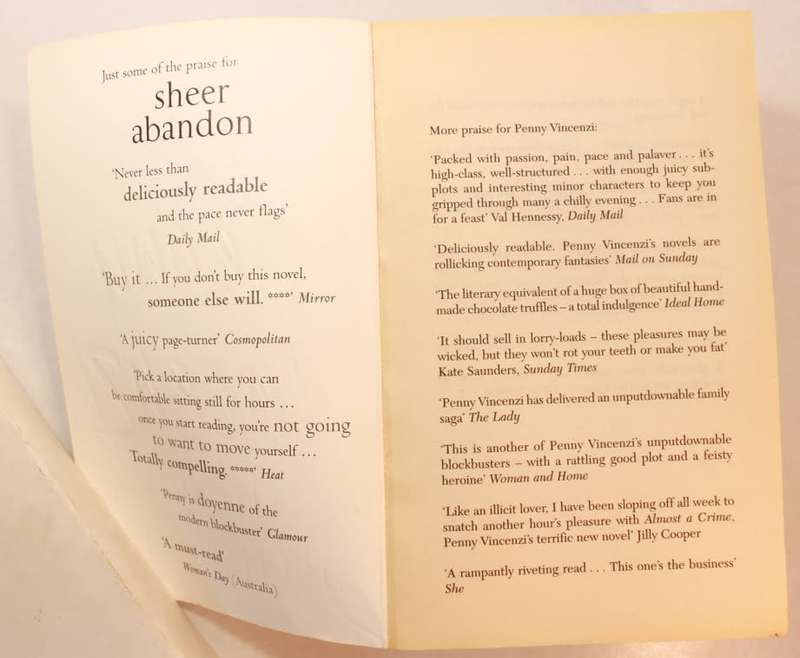 Just some of the praise for
sheer
abandon
‘Never less than
deliciously readable
and the pace never flags’
Daily Mail
‘Buy it ... If you don’t buy this novel,
someone else will. ****’ Mirror
‘A juicy page-turner’ Cosmopolitan
‘Pick a location where you can
be comfortable sitting still for hours ...
once you start reading, you’re not going
to want to move yourself ...
Totally compelling. *****’ Heat
‘Penny is doyenne of the
modern blockbuster’ Glamour
‘A must-read’
Woman’s Day (Australia)
More praise for Penny Vincenzi:
‘Packed with passion, pain, pace and palaver . . . it’s
high-class, well-structured . . . with enough juicy sub-
plots and interesting minor characters to keep you
gripped through many a chilly evening . . . Fans are in
for a feast’ Val Hennessy, Daily Mail
‘Deliciously readable. Penny Vincenzi’s novels are
rollicking contemporary fantasies’ Mail on Sunday
‘The literary equivalent of a huge box of beautiful hand-
made chocolate truffles – a total indulgence’ Ideal Home
‘It should sell in lorry-loads – these pleasures may be
wicked, but they won’t rot your teeth or make you fat’
Kate Saunders, Sunday Times
‘Penny Vincenzi has delivered an unputdownable family
saga’ The Lady
‘This is another of Penny Vincenzi’s unputdownable
blockbusters – with a rattling good plot and a feisty
heroine’ Woman and Home
‘Like an illicit lover, I have been sloping off all week to
snatch another hour’s pleasure with Almost a Crime,
Penny Vincenzi’s terrific new novel’ Jilly Cooper
‘A rampantly riveting read . . . This one’s the business’
She